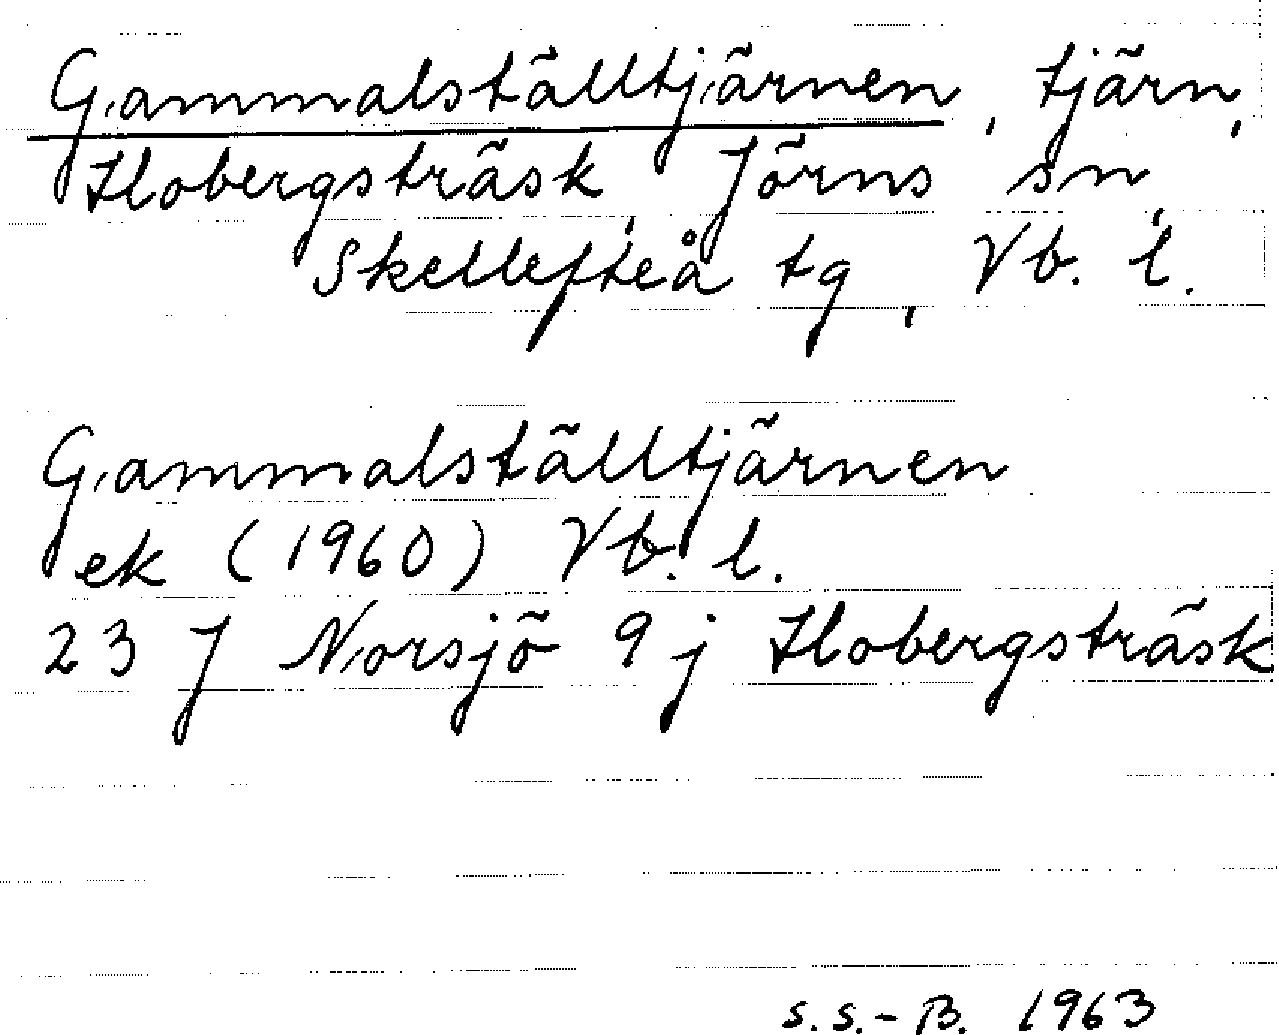 Gammalställtjärnen, tjärn,
Hobergsträsk, Jörns sn,
Skellefteå tg, Vb. l.
Gammalställtjärnen
ek (1960) Vb. l.
23 J Norsjö 9 j Hobergsträsk
S.S.-B. 1963